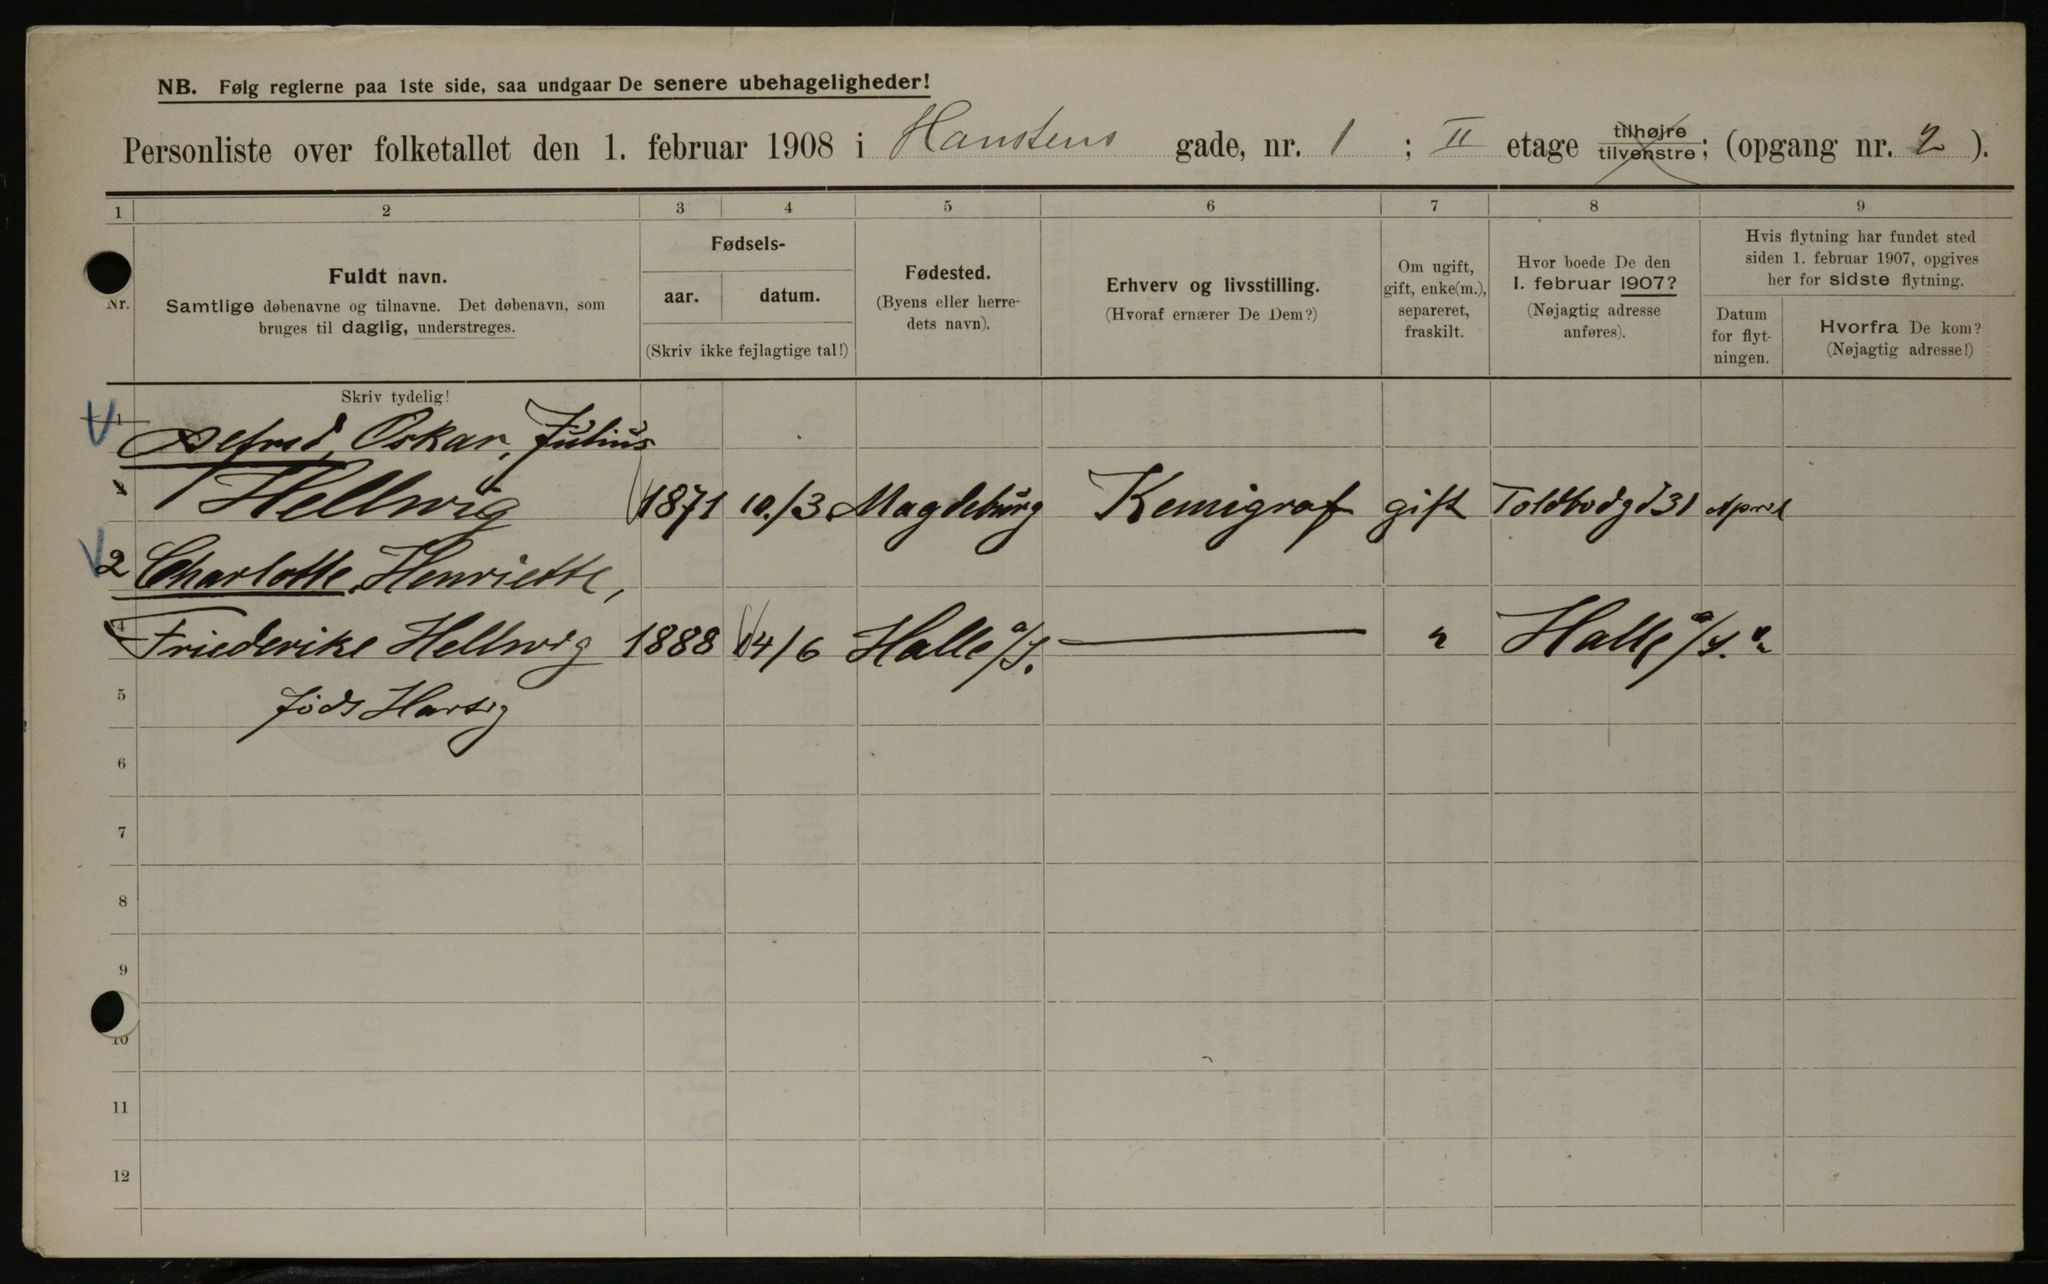 NB. Følg reglerne paa 1ste side, saa undgaar De senere ubehageligheder!
Personliste over folketallet den 1. februar 1908 i Hanstens gade, nr. 1 ; II etage tilhøjre tilvenstre; (opgang nr. 2 ).
1 2 3 4 5 6 7 8 9
Nr.
Fuldt navn.
Samtlige døbenavne og tilnavne. Det døbenavn, som
bruges til daglig, understreges.
Fødsels-
aar. datum.
(Skriv ikke fejlagtige tal!)
Fødested.
(Byens eller herre-
dets navn).
Erhverv og livsstilling.
(Hvoraf ernærer De Dem?)
Om ugift,
gift, enke(m.),
separeret,
fraskilt.
Hvor boede De den
1. februar 1907?
(Nøjagtig adresse
anføres).
Hvis flytning har fundet sted
siden 1. februar 1907, opgives
her for sidste flytning.
Datum
for flyt-
ningen.
Hvorfra De kom?
(Nøjagtig adresse!)
Skriv tydelig!
1 Alfred, Oskar, Julius
Hellwig 1871 10./3 Magdeburg Kemigraf gift Toldbodgd 31 April
2 Charlotte, Henriette,
4 Friederike Hellwig 1888 14/6 Halle a/S. — " Halle a/S.
5 föds Hartig
6
7
8
9
10
11
12